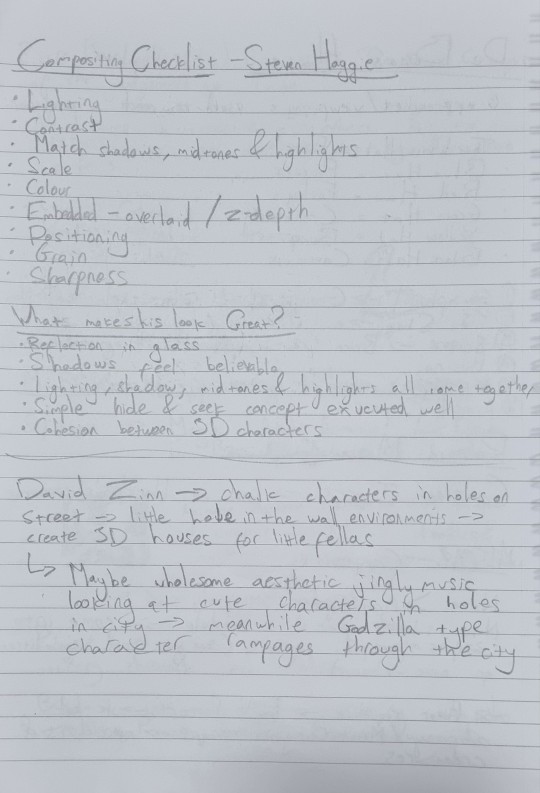 Compositing Checklist - Steven Haggie
• Lighting
• Contrast
• Match shadows, midtones & highlights
• Scale
• Colour
• Embedded - overlaid / z-depth
• Positioning
• Grain
• Sharpness
What makes his look Great?
• Reflaction in glass
• Shadows feel believable
• Lighting, shadow, midtones & highlights all come together
• Simple hide & seek concept executed well
• Cohesion between 3D characters
David Zinn → chalk characters in holes on
street → little hole in the wall environments →
create 3D houses for little fellas
↳ Maybe wholesome aesthetic jingly music
looking at cute characters in holes
in city → meanwhile Godzilla type
character rampages through the city